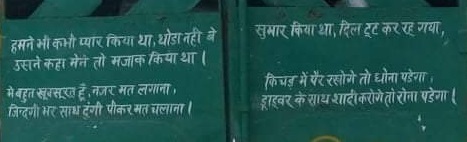 हमने भी कभी प्यार किया था, थोडा नही बे
सुमार किया था, दिल टूट कर रह गया,
उसने कहा मेने तो मजाक किया था।
मे बहुत खूबसूरत हूँ, नजर मत लगाना,
जिन्दगी भर साथ दूंगी पीकर मत चलाना।
किचड़ में पैर रखोगे तो धोना पड़ेगा।
ड्राइवर के साथ शादी करोगे तो रोना पड़ेगा।